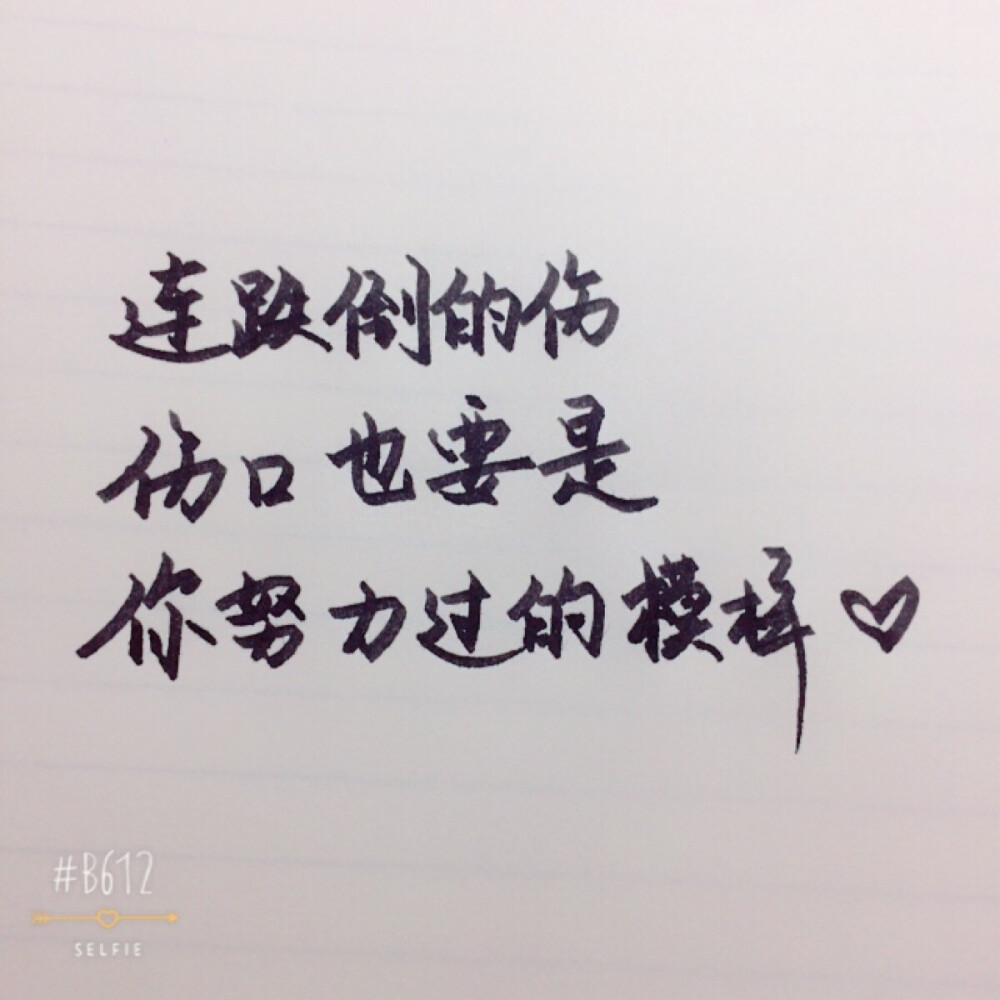 连跌倒的伤
伤口也要是
你努力过的模样♡
#B612
SELFIE